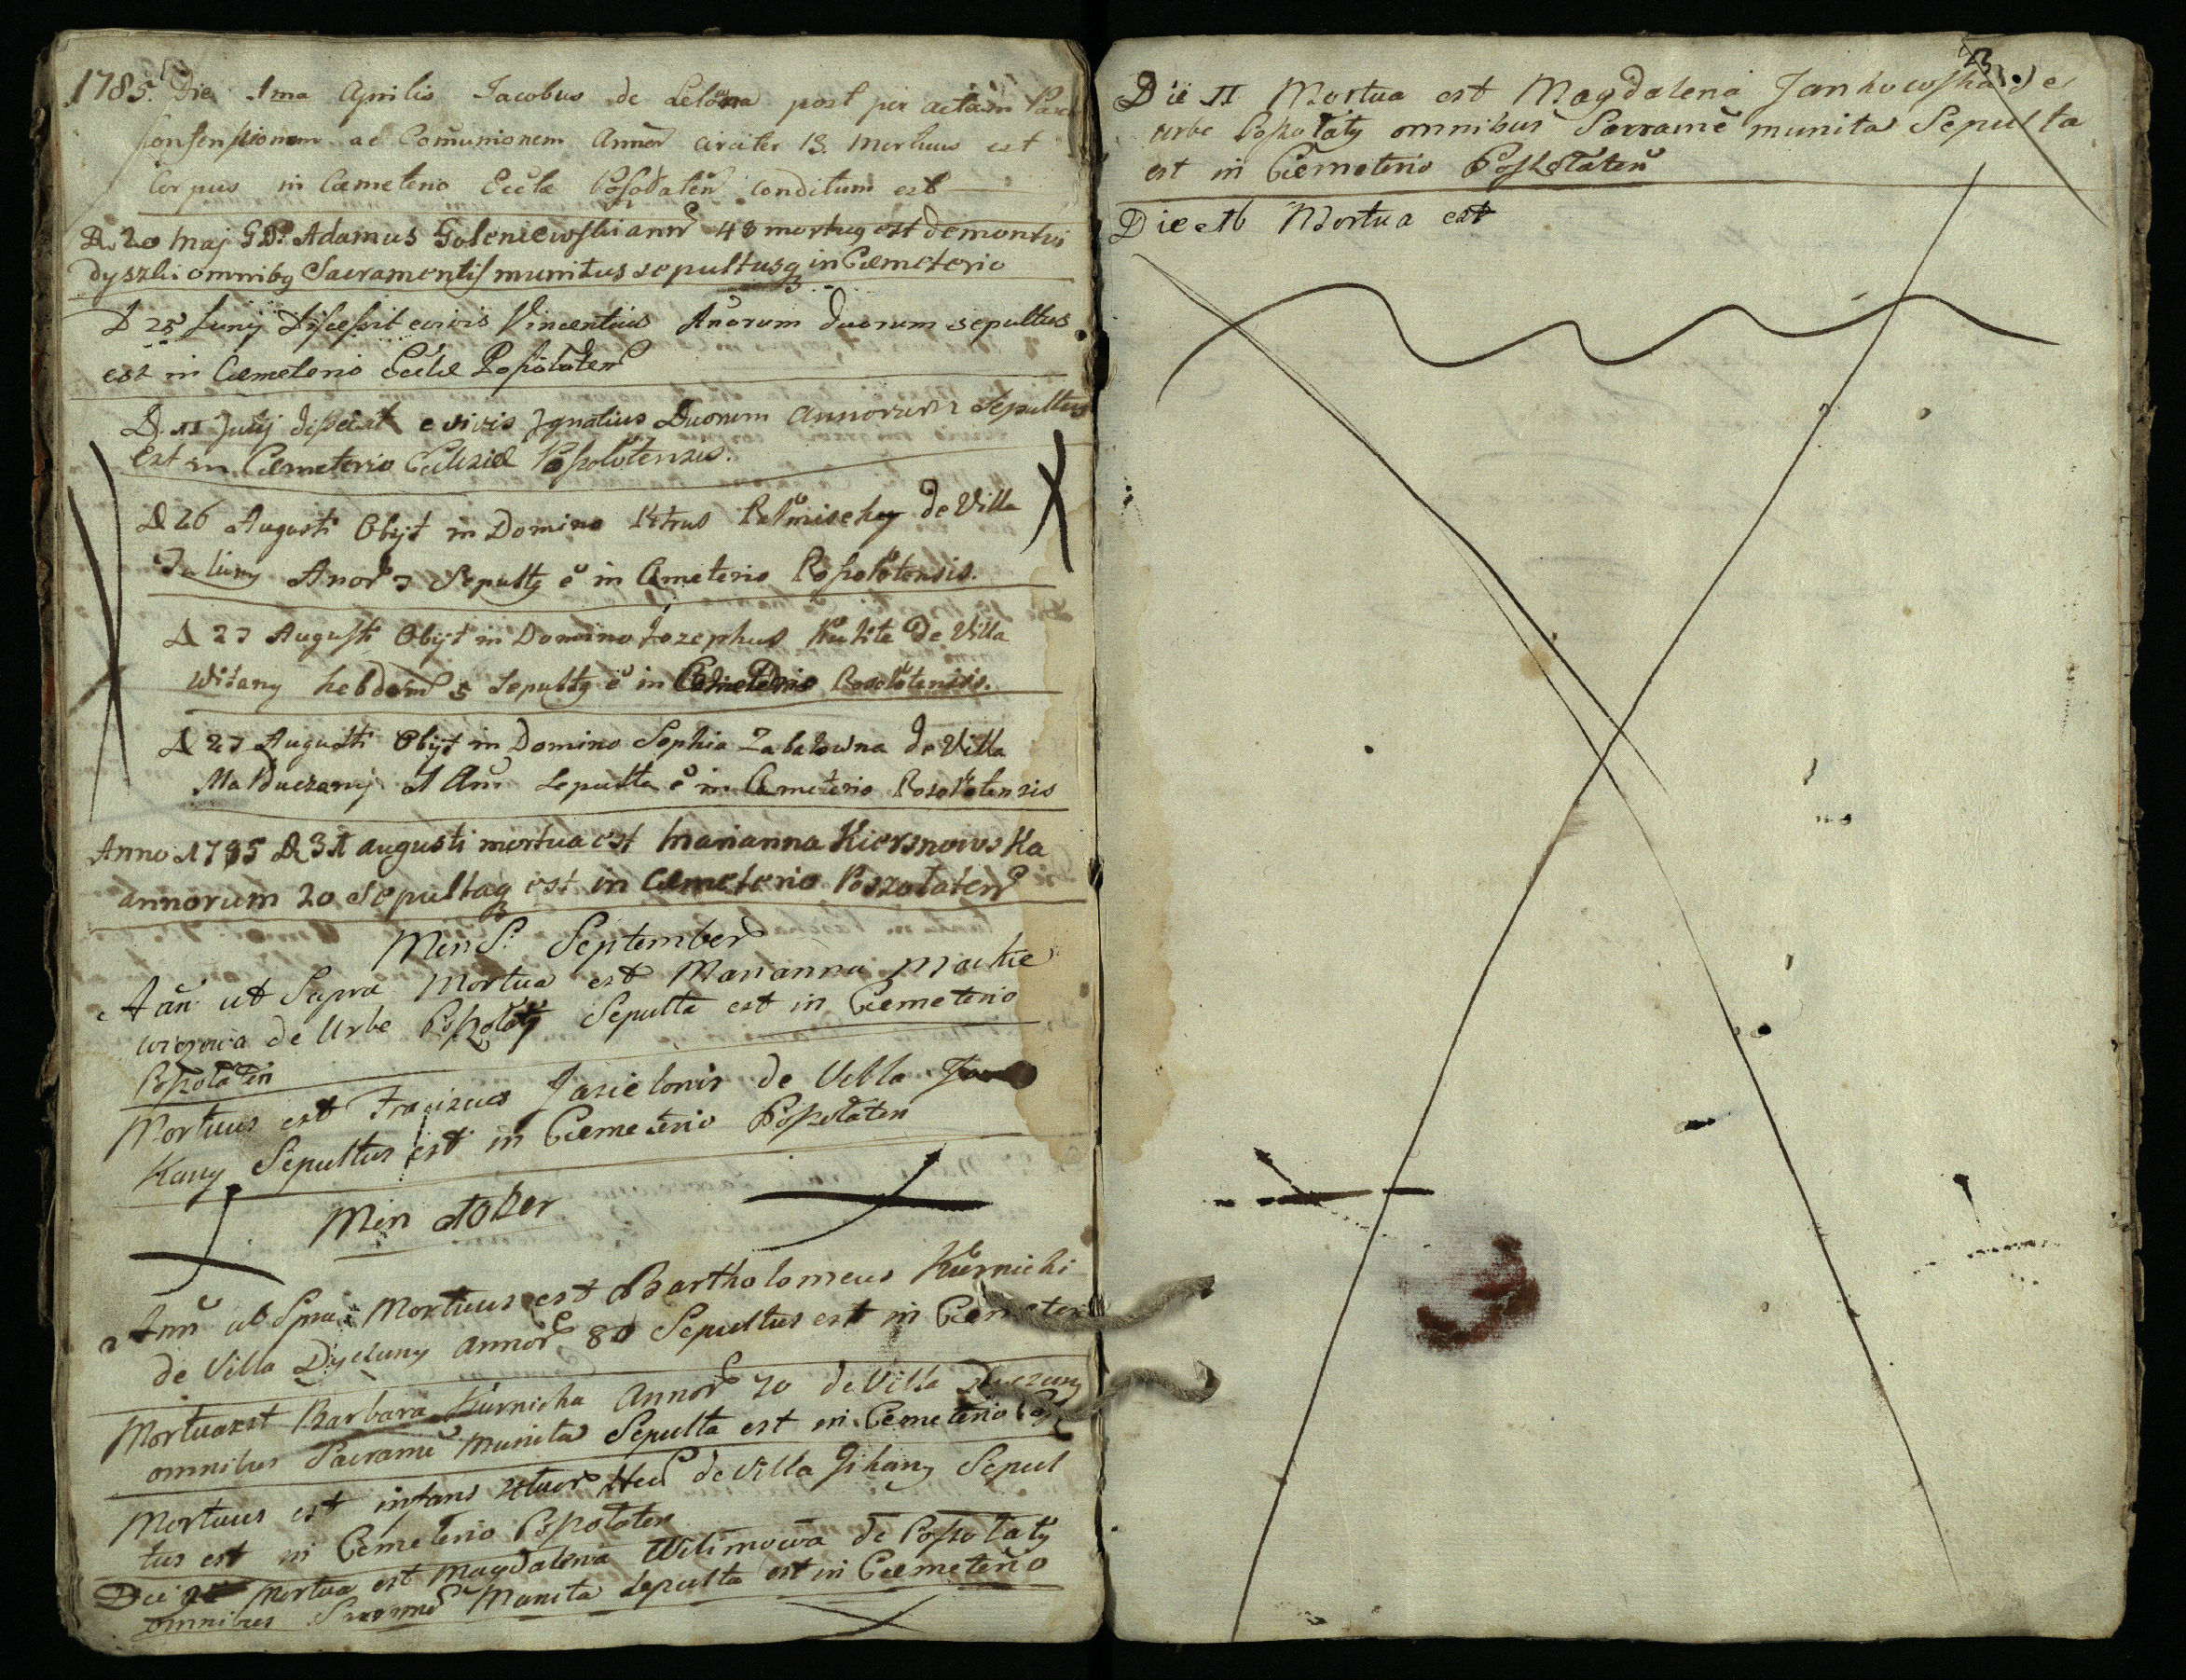 1785. Die 1ma Aprilis Jacobus de Lelowa post per actam
ac Comunionem Annor circiter 13. Mortuus est
Corpus in Cæmeterio Eccłæ conditum est
D. 20 Maj G.D. Adamus Goleniewski annor 48 mortuq est de montwi
dyszki omnibq Sacramentis munitus sepultusq in Cæmeterio
D 25 Junij Discessit e vivis Vincentius Anorum duorum sepultus
est in Cæmeterio Eccłæ Posołoten
D. 11 Julij e vivis Ignatius Duorum Annorum Sepultus
Est in Cæmeterio Ecclesiæ Posołotensis.
D 26 Augusti Obijt in Domino Petrus de Villa
Anor 7 Sepultq ē in Cæmeterio Posołotensis.
D 27 Augusti Obijt in Domino Jozephus de Villa
Witany hebdom 5 Sepultq ē in Posołotensis.
D 27 Augusti Obijt in Domino Sophia Zabałowna de Villa
1 An Sepulta ē in Cæmeterio Posołotensis
Anno 1785 D 31 augusti mortua est Marianna Kiersnowska
annorum 20 Sepultaq est in Cæmeterio Poszołaten
Mens. September
Añ ut Supra Mortua est Marianna Mackie
wiczowa de Urbe Poszołaty Sepulta est in Cæmeterio
Poszołaten
Mortuus est Jasielonis de Villa
Kany Sepultus est in Cæmeterio Poszołaten
Men 8tober
Ann ut Supra Mortuus est Bartholomeus Kurnicki
de Villa Annor 80 Sepultus est in Cæmeteri
Mortua est Barbara Kurnicka Annor 70 de Villa
omnibus Sacrame Munita Sepulta est in Cæmeterio Pos
Mortuus est infans de Villa Sepul
tus est in Cæmeterio Poszołaten
Die Mortua est Magdalena Wilimowa de Poszołaty
omnibus Munita Sepulta est in Cæmeterio
23
Die 11 Mortua est Magdalena Jankowska de
urbe Poszołaty omnibus Sacrame munita Sepulta
est in Cæmeterio Poszołaten
Die 16 Mortua est